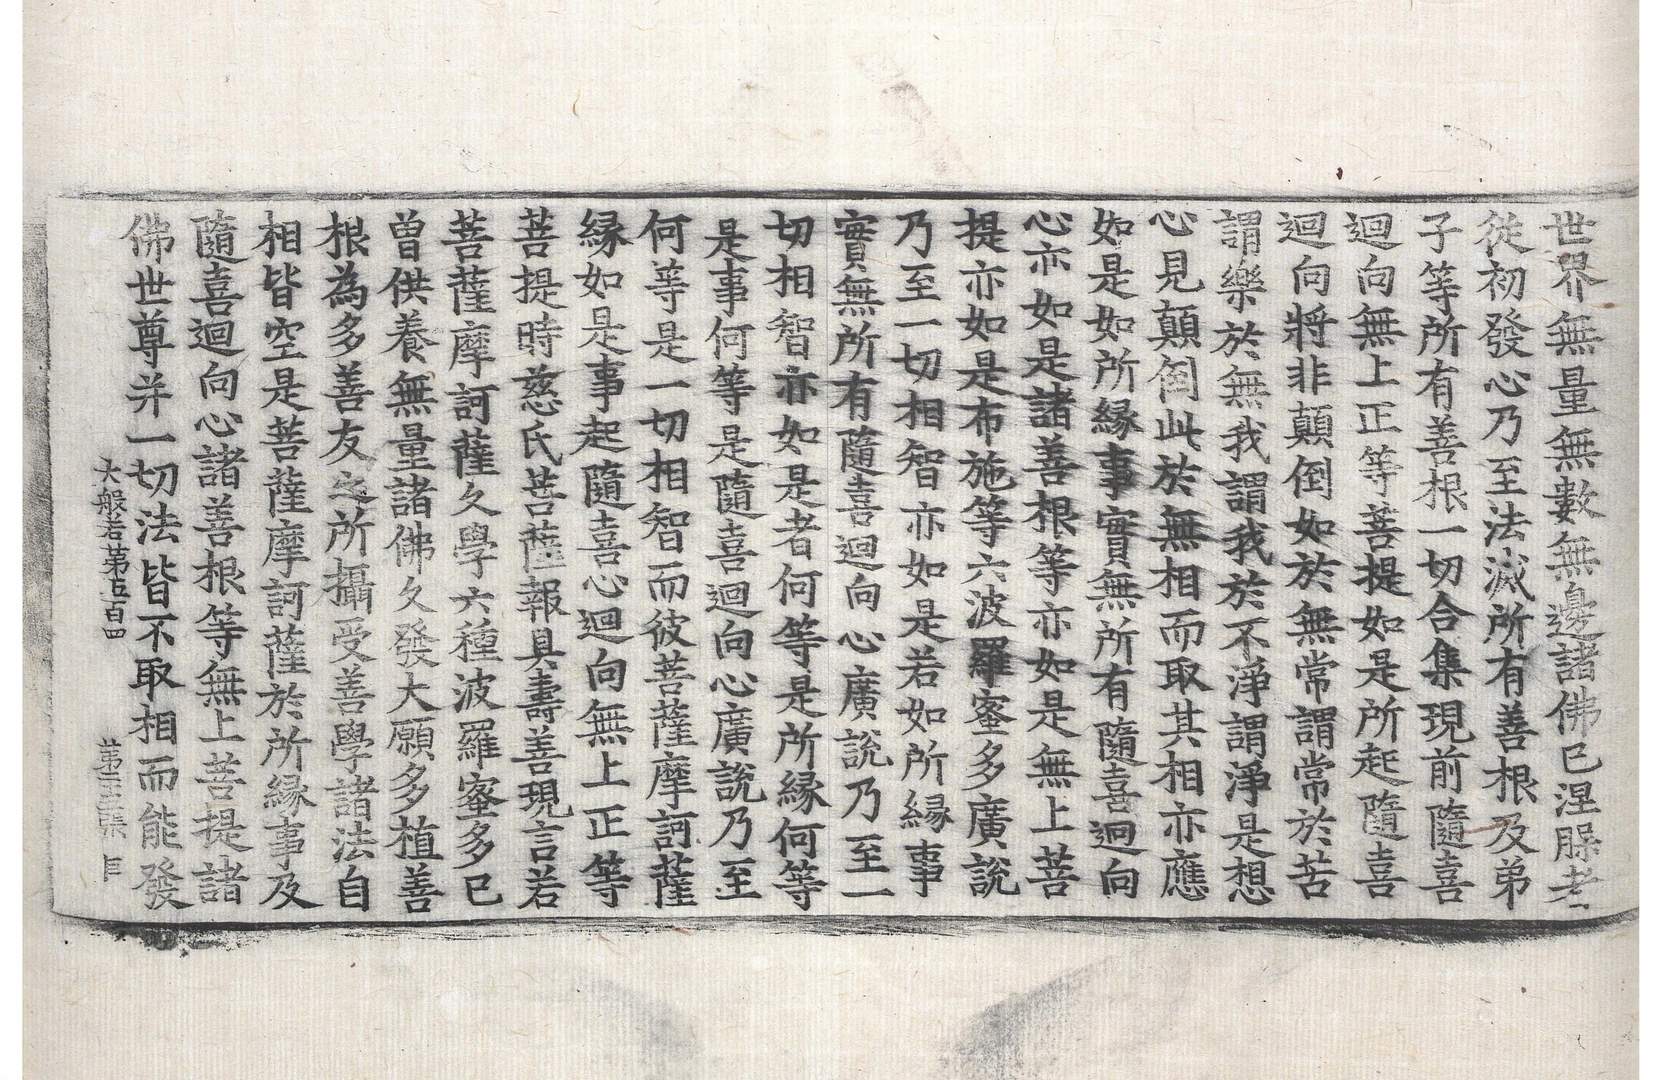 世界無量無數無邊諸佛已涅槃者
從初發心乃至法滅所有善根及弟
子等所有善根一切合集現前隨喜
迴向無上正等菩提如是所起隨喜
迴向將非顛倒如於無常謂常於苦
謂樂於無我謂我於不淨謂淨是想
心見顛倒此於無相而取其相亦應
如是如所縁事實無所有隨喜迴向
心亦如是諸善根等亦如是無上菩
提亦如是布施等六波羅蜜多廣說
乃至一切相智亦如是若如所縁事
實無所有隨喜迴向心廣說乃至一
切相智亦如是者何等是所縁何等
是事何等是隨喜迴向心廣說乃至
何等是一切相智而彼菩薩摩訶薩
縁如是事起隨喜心迴向無上正等
菩提時慈氏菩薩報具壽善現言若
菩薩摩訶薩久學六種波羅蜜多已
曾供養無量諸佛久發大願多植善
根為多善友之所攝受善學諸法自
相皆空是菩薩摩訶薩於所縁事及
隨喜迴向心諸善根等無上菩提諸
佛世尊并一切法皆不取相而能發
大般若第五百四 第張